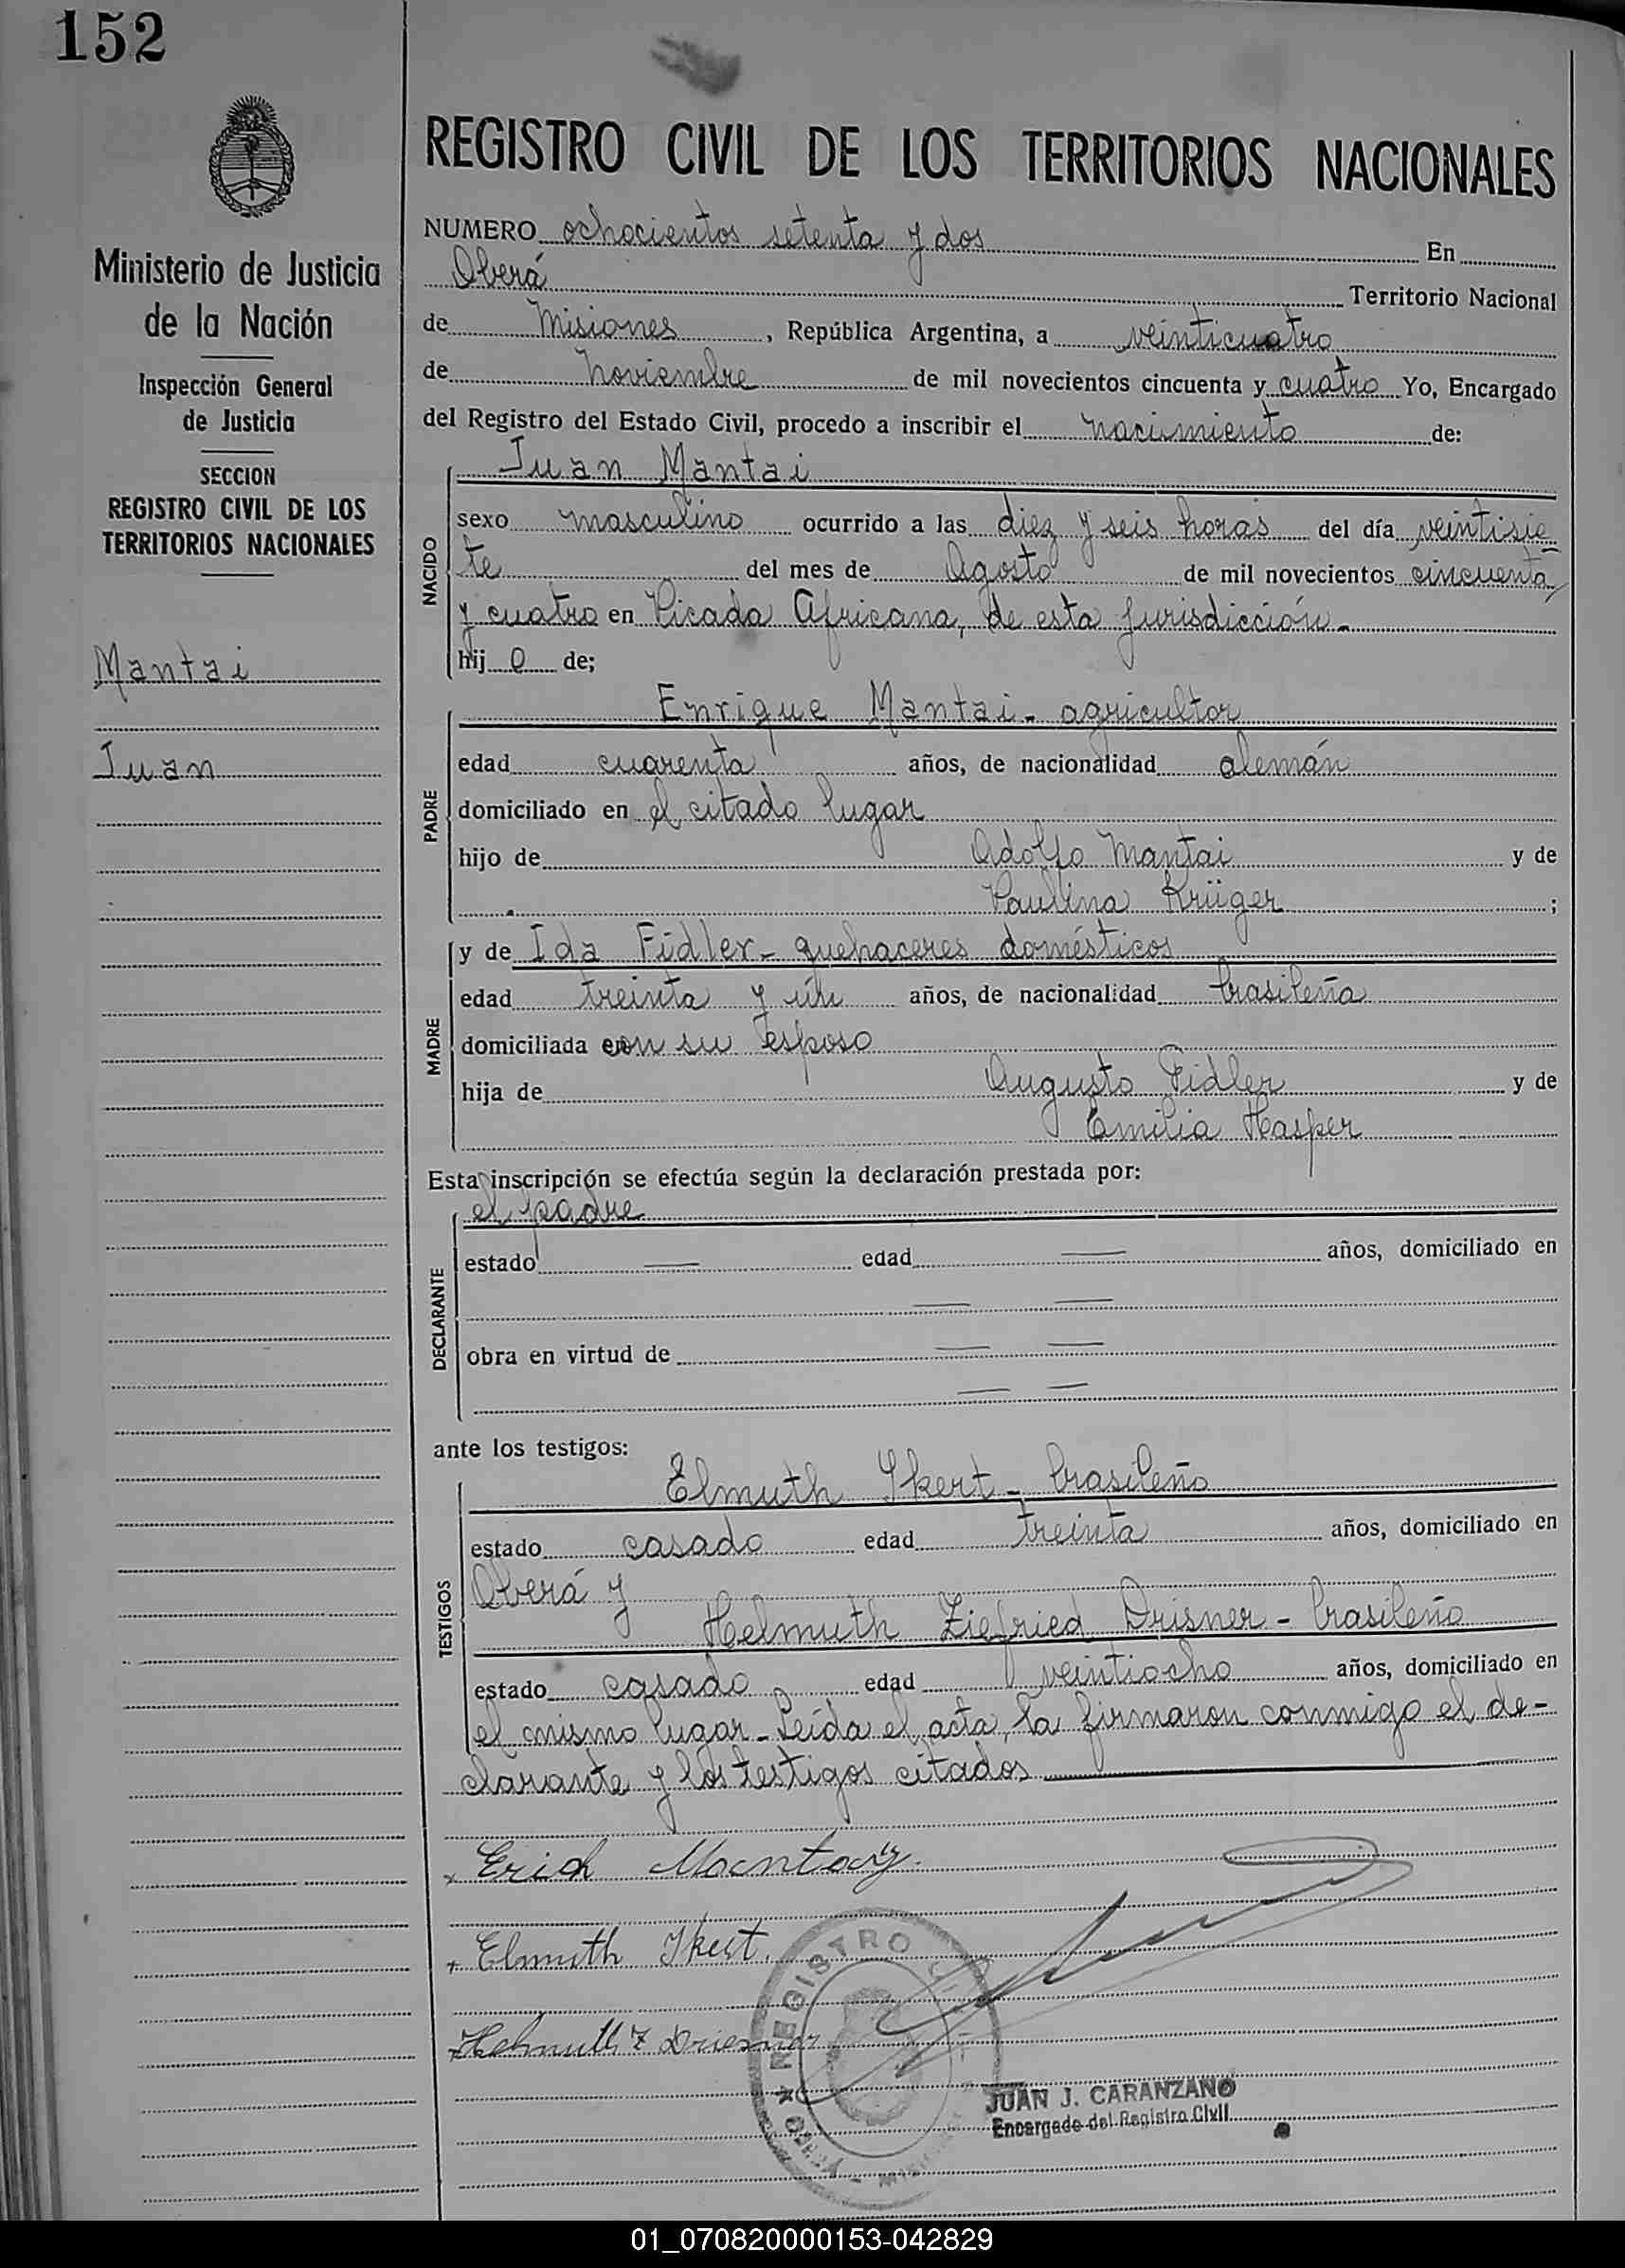 152
REGISTRO CIVIL DE LOS TERRITORIOS NACIONALES
Ministerio de Justicia
de la Nación
Inspección General
de Justicia
SECCION
REGISTRO CIVIL DE LOS
TERRITORIOS NACIONALES
Mantai
Juan
NUMERO ochocientos setenta y dos En
Oberá Territorio Nacional
de Misiones, República Argentina, a veinticuatro
de Noviembre de mil novecientos cincuenta y cuatro Yo, Encargado
del Registro del Estado Civil, procedo a inscribir el nacimiento de:
NACIDO
Juan Mantai
sexo masculino ocurrido a las diez y seis horas del día veintisie-
te del mes de Agosto de mil novecientos cincuenta
y cuatro en Picada Africana, de esta jurisdicción-
hij o de;
PADRE
Enrique Mantai - agricultor
edad cuarenta años, de nacionalidad alemán
domiciliado en el citado lugar
hijo de Adolfo Mantai y de
Paulina Krüger ;
MADRE
y de Ida Fidler - quehaceres domésticos
edad treinta y ún años, de nacionalidad brasileña
domiciliada con su esposo
hija de Augusto Fidler y de
Emilia Hasper
Esta inscripción se efectúa según la declaración prestada por:
DECLARANTE
el padre
estado — edad — años, domiciliado en
— —
obra en virtud de — —
— —
ante los testigos:
TESTIGOS
Elmuth Ikert - brasileño
estado casado edad treinta años, domiciliado en
Oberá y
Helmuth Ziefried Drisner - brasileño
estado casado edad veintiocho años, domiciliado en
el mismo lugar - Leída el acta, la firmaron conmigo el de-
clarante y los testigos citados
Erich Mantay.
Elmuth Ikert.
Helmuth Z Driesner
REGISTRO
JUAN J. CARANZANO
Encargado del Registro Civil
01_070820000153-042829